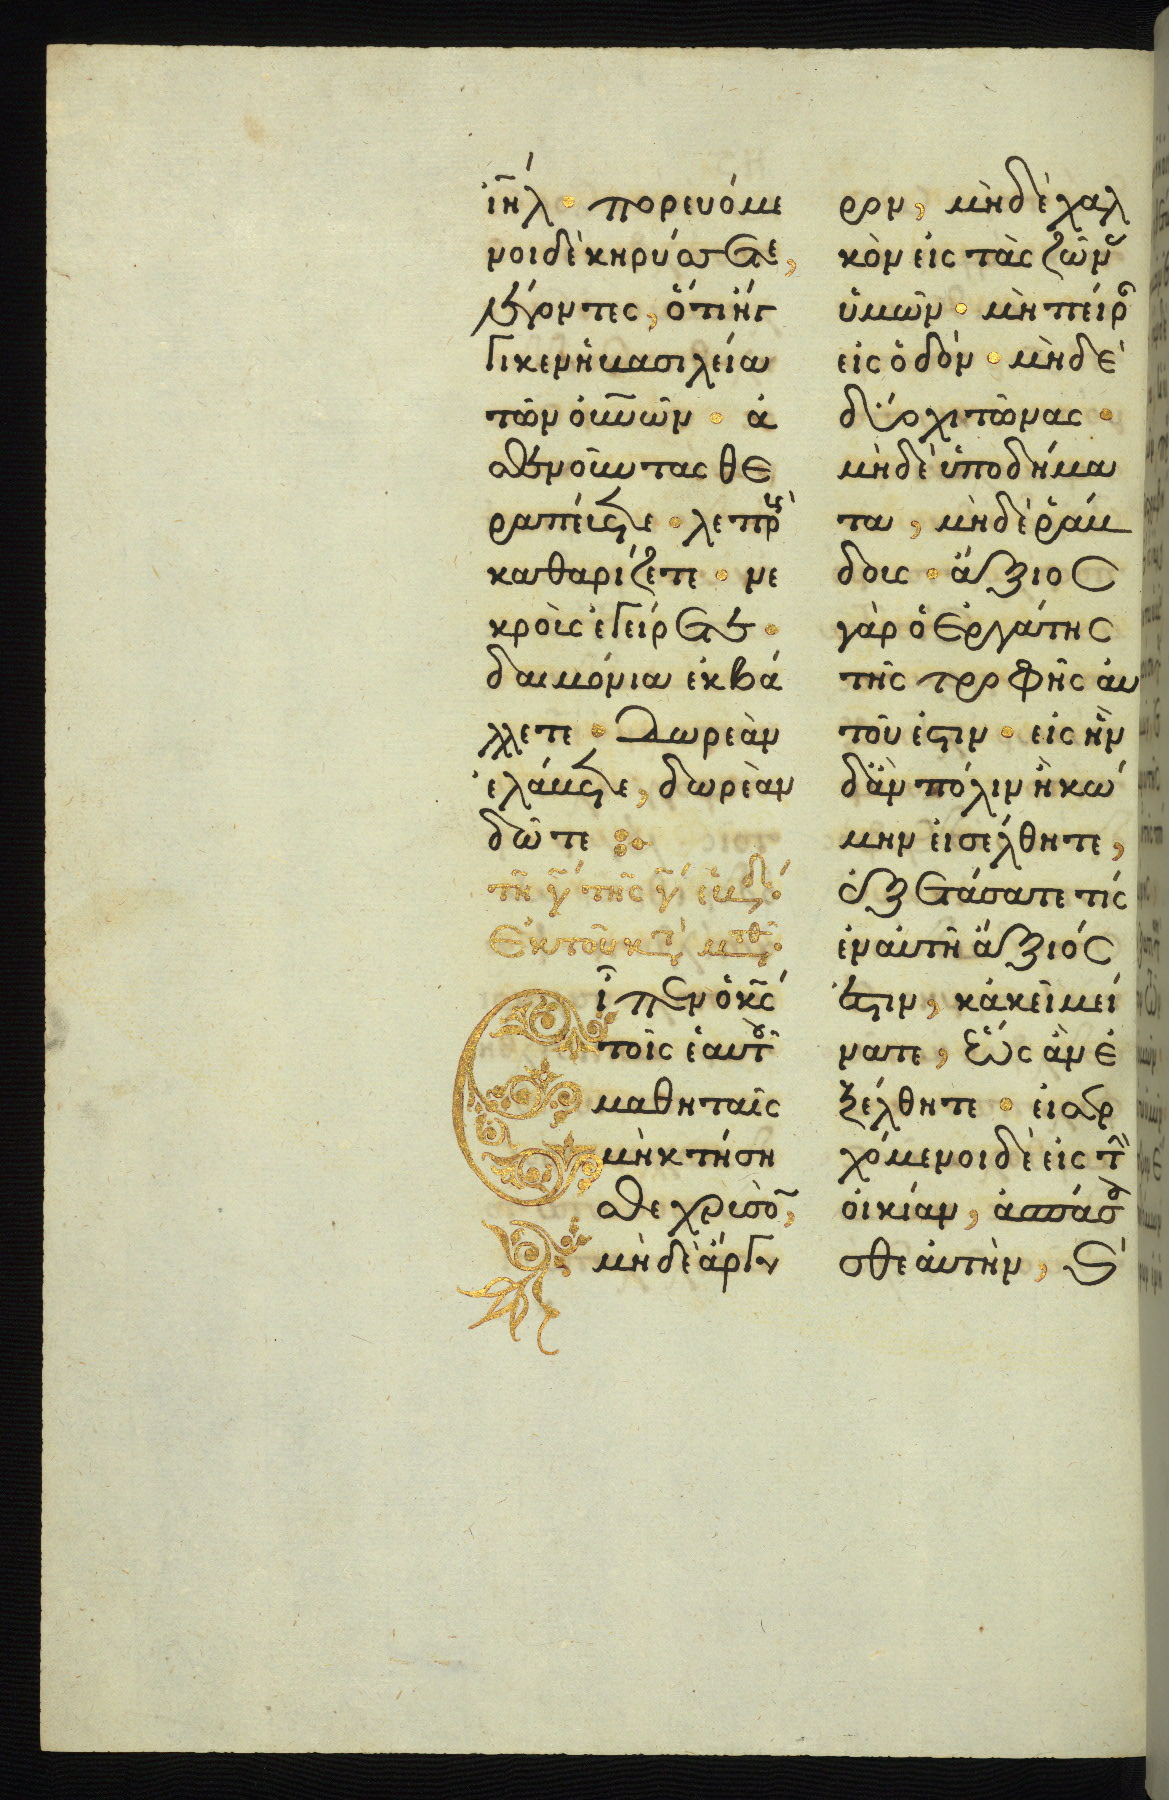 ιη̅λ · πορευόμε
νοι δὲ κηρύσσετε,
λέγοντες, ὅτι ἤγ
γικεν ἡ βασιλεία
τῶν οὐ̅νῶν · ἀ
σθενοῦντας θε
ραπεύετε · λεπρ(οὺς)
καθαρίζετε · νε
κροὺς ἐγείρετε ·
δαιμόνια ἐκβά
λλετε · Δωρεὰν
ἐλάβετε, δωρεὰν
δῶτε :·
τῇ γ̅ τῆς γ̅ ἑβδ:
Ἐκ τοῦ κτ μτθ:
Εἶπεν ὁ κ̅ς
τοῖς ἑαυτοῦ
μαθηταῖς
μὴ κτήση
σθε χρυσὸ̅,
μὴ δὲ ἄργυ
ρον, μὴ δὲ χαλ
κὸν εἰς τὰς ζών(ας)
ὑμῶν · μὴ πείρ(αν)
εἰς ὁδόν · μὴ δὲ
δύο χιτῶνας ·
μὴ δὲ ὑποδήμα
τα, μὴ δὲ ῥάβ
δους · ἄξιος
γὰρ ὁ ἐργάτης
τῆς τροφῆς αὐ
τοῦ ἐστιν · εἰς ἣν
δ' ἂν πόλιν ἢ κώ
μην εἰσέλθητε,
ἐξετάσατε τίς
ἐν αὐτῇ ἄξιός
ἐστιν, κἀκεῖ μεί
νατε, ἕως ἂν ἐ
ξέλθητε · εἰσερ
χόμενοι δὲ εἰς τ(ὴν)
οἰκίαν, ἀσπάσα
σθε αὐτὴν, ϗ